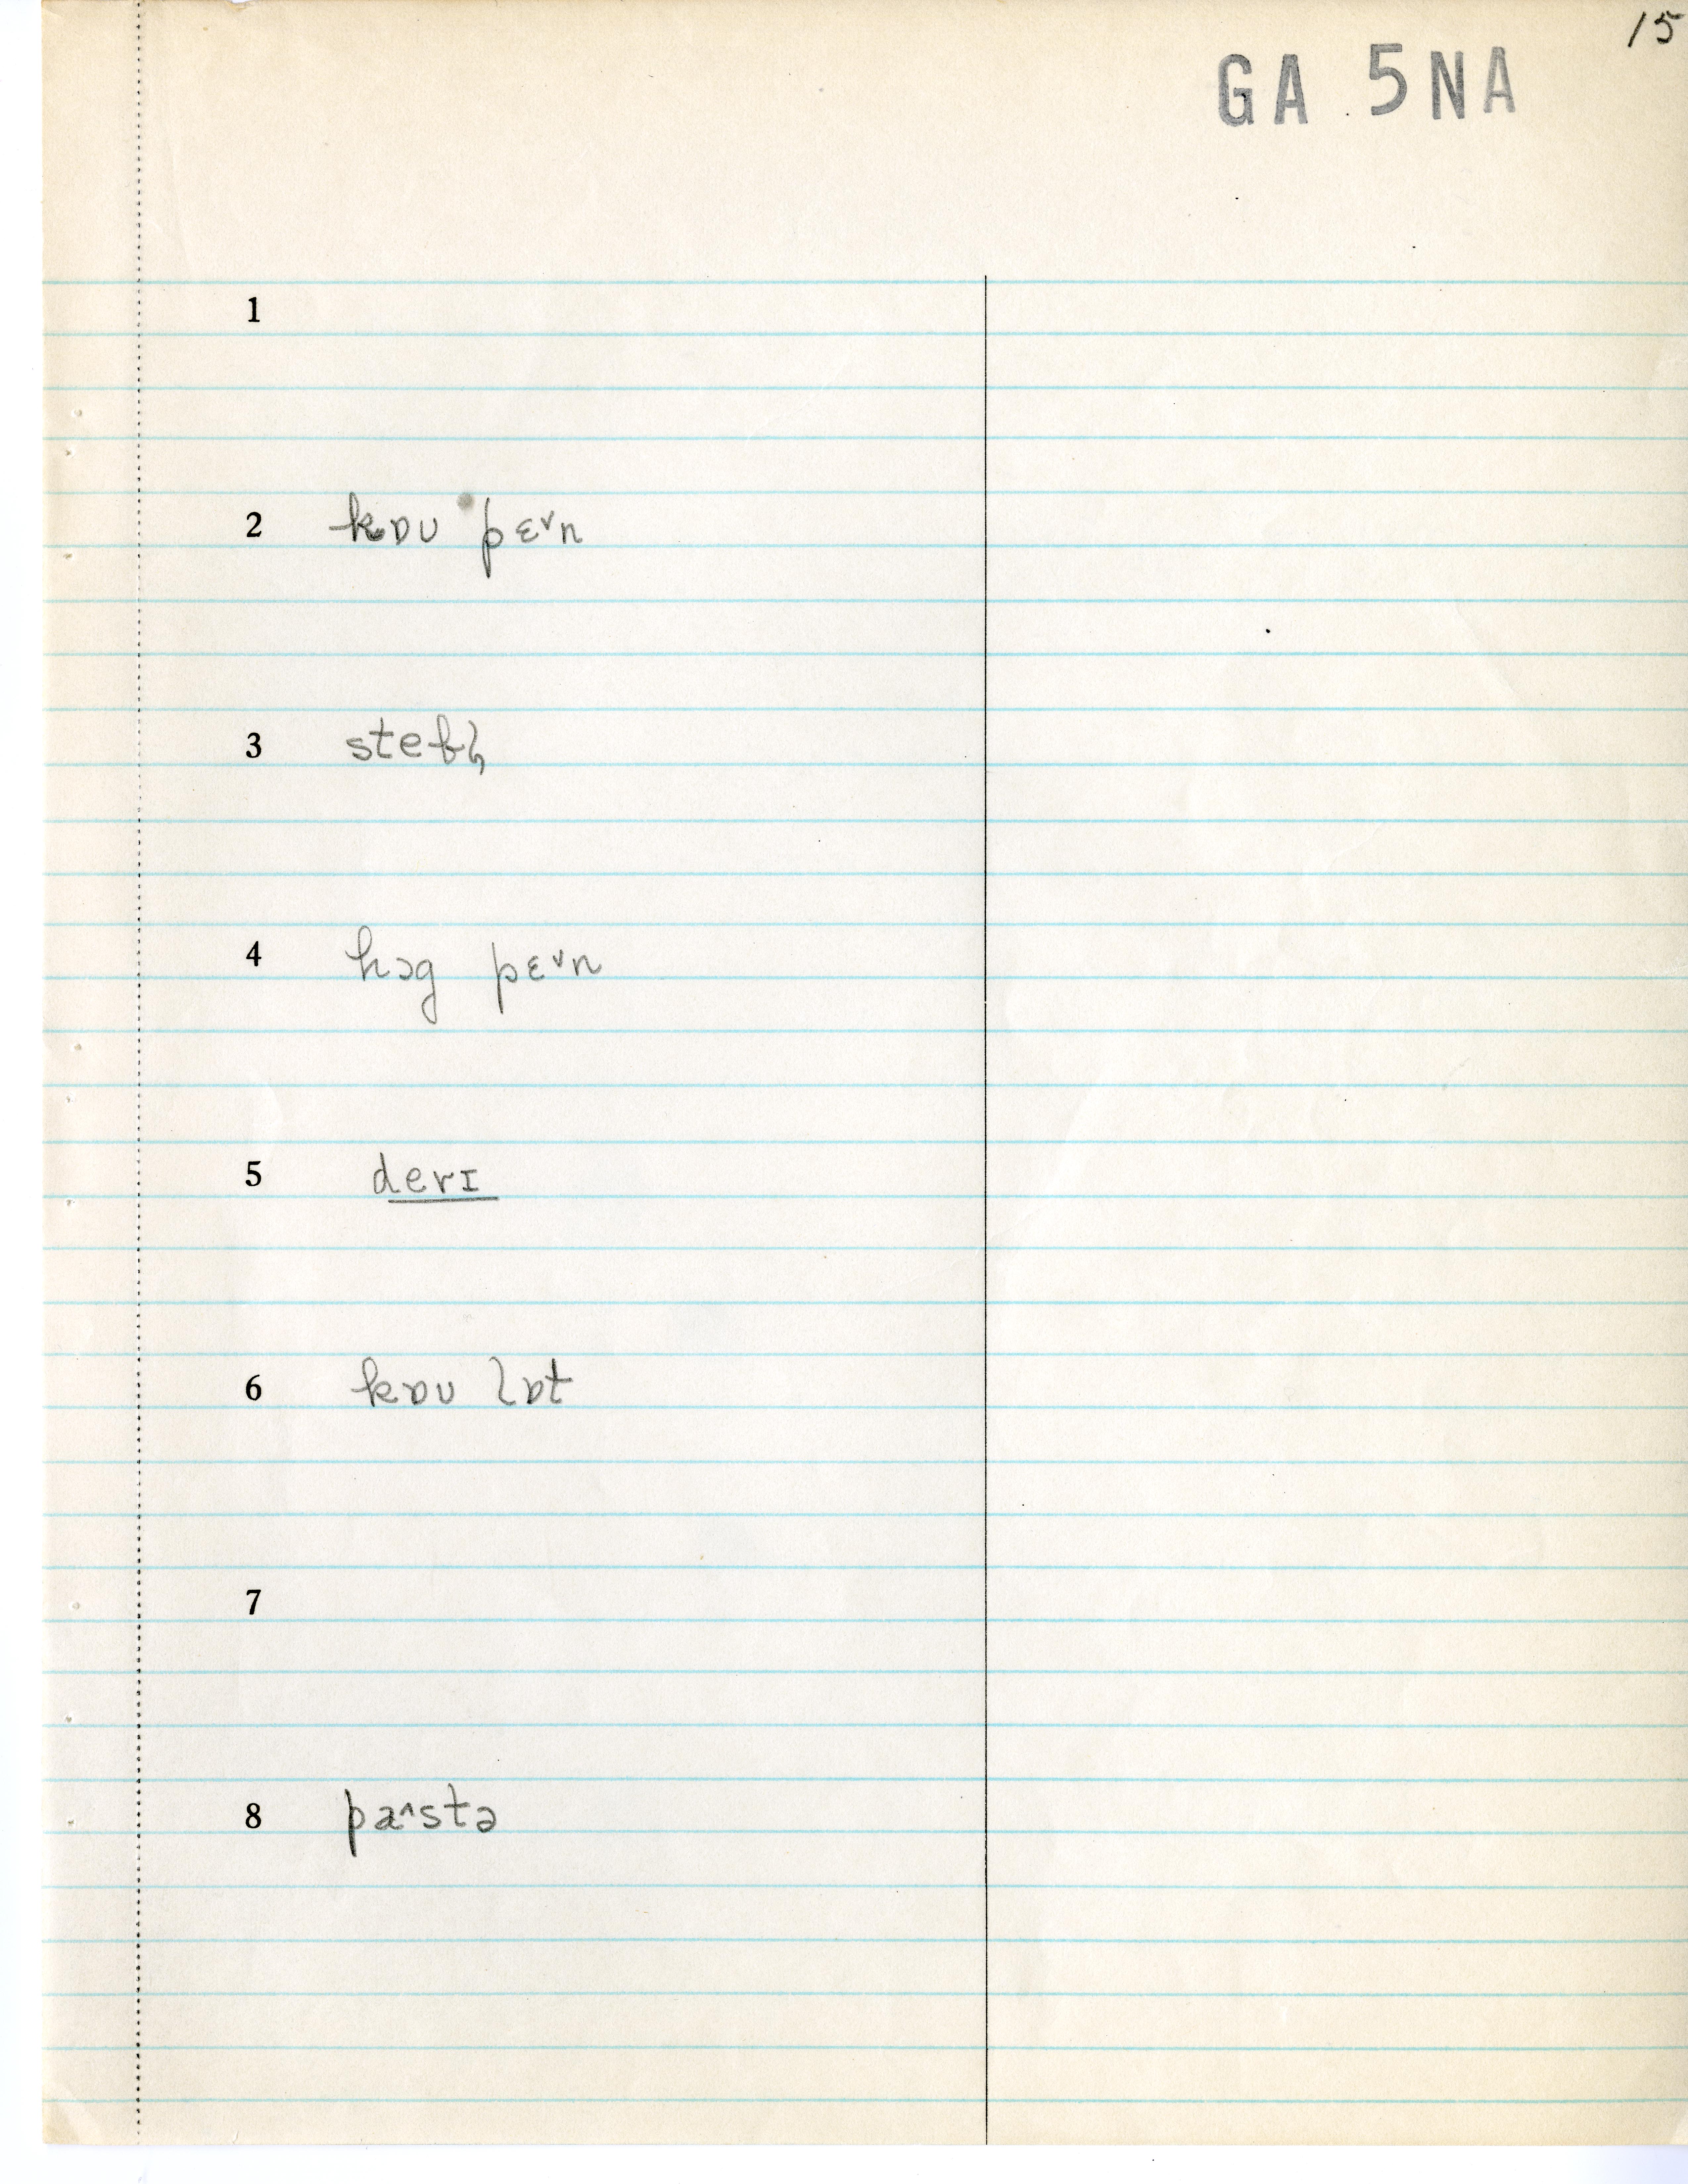 15
GA 5NA
1
2 kɒʊ pɛ˅n
3 stebl̩
4 hɔg pɛ˅n
5 derɪ
6 kɒʊ lɒt
7
8 pa˄stə